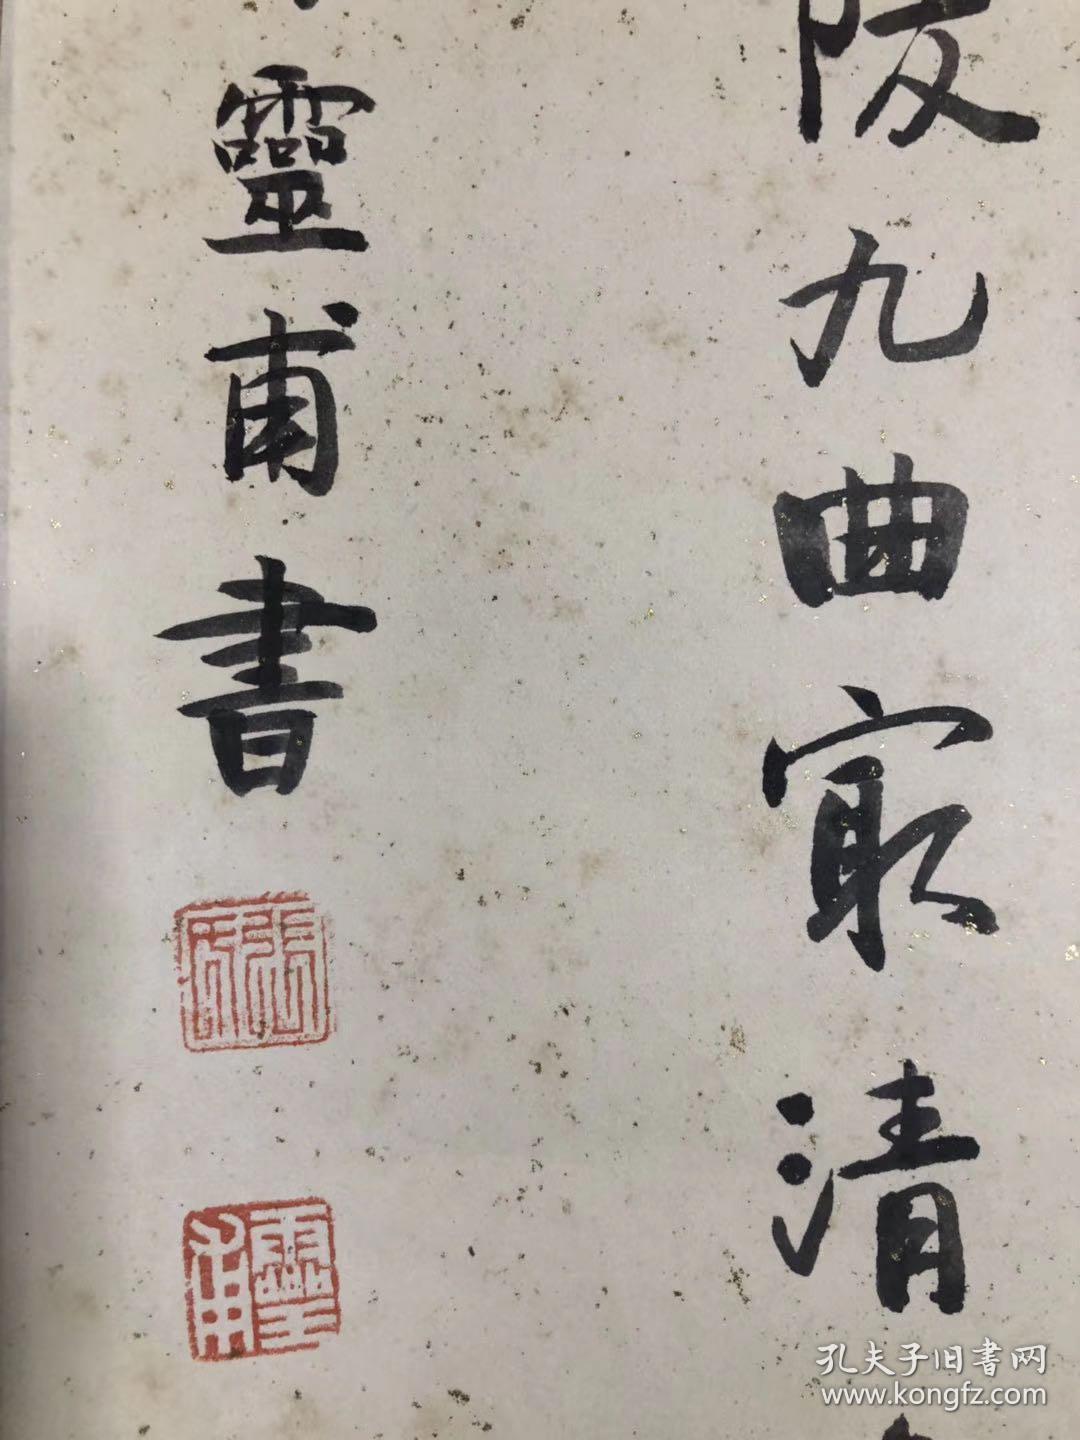 阪九曲㝡清
靈甫書
張
靈甫
孔夫子旧书网
www.kongfz.com